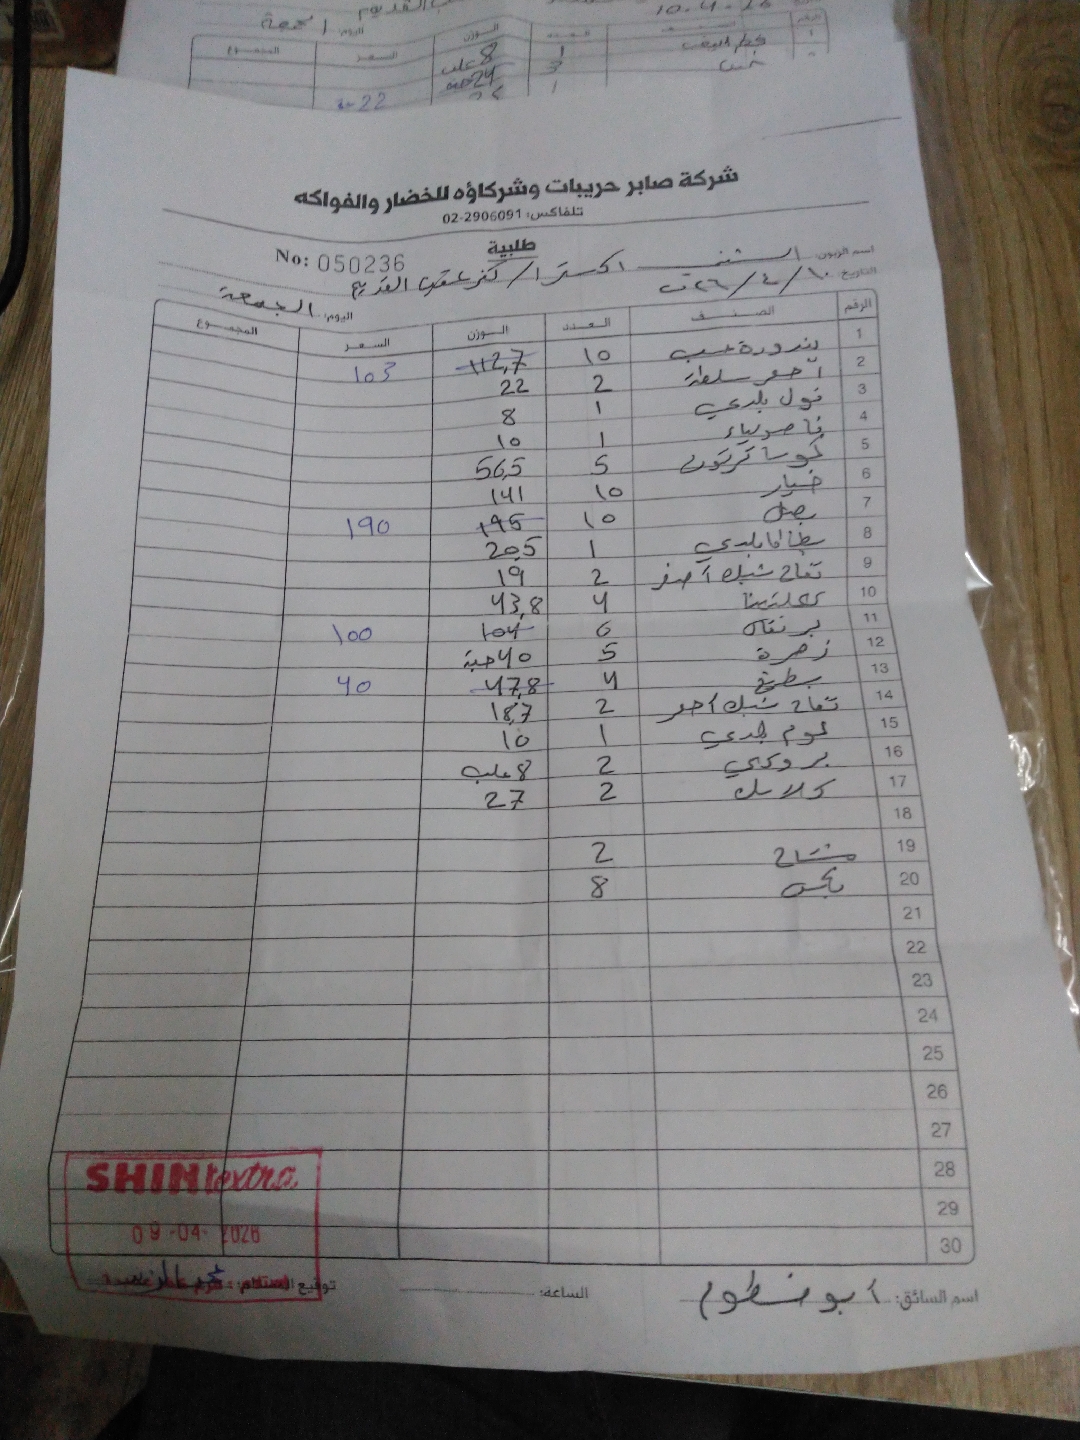 10.4.26
اليوم: الجمعة
الرقم العدد الوزن السعر المجموع
1 1 8 علب
3 24
1 22
شركة صابر حريبات وشركاؤه للخضار والفواكه
تلفاكس: 02-2906091
طلبية
No: 050236
اسم الزبون: الشني اكسترا / كفر عقب القديم
التاريخ: ١٠/٤/٢٠٢٦
اليوم: الجمعة
الرقم الصنف العدد الوزن السعر المجموع
1 بندورة حب 10 112,7 103
2 أحمر سلطة 2 22
3 فول بلدي 1 8
4 فاصولياء 1 10
5 كوسا كرتون 5 56,5
6 خيار 10 141
7 بصل 10 195 190
8 بطاطا بلدي 1 20,5
9 تفاح شبك أصفر 2 19
10 كلمنتينا 4 43,8
11 برتقال 6 104 100
12 زهرة 5 40 حبة
13 بطيخ 4 47,8 40
14 تفاح شبك أحمر 2 18,7
15 ثوم بلدي 1 10
16 بروكلي 2 8 علب
17 2 27
18
19 مشتاح 2
20 بكس 8
21
22
23
24
25
26
27
28
29
30
SHINI extra
09-04-2026
اسم السائق: ابو نظوم
الساعة:
توقيع المستلم: